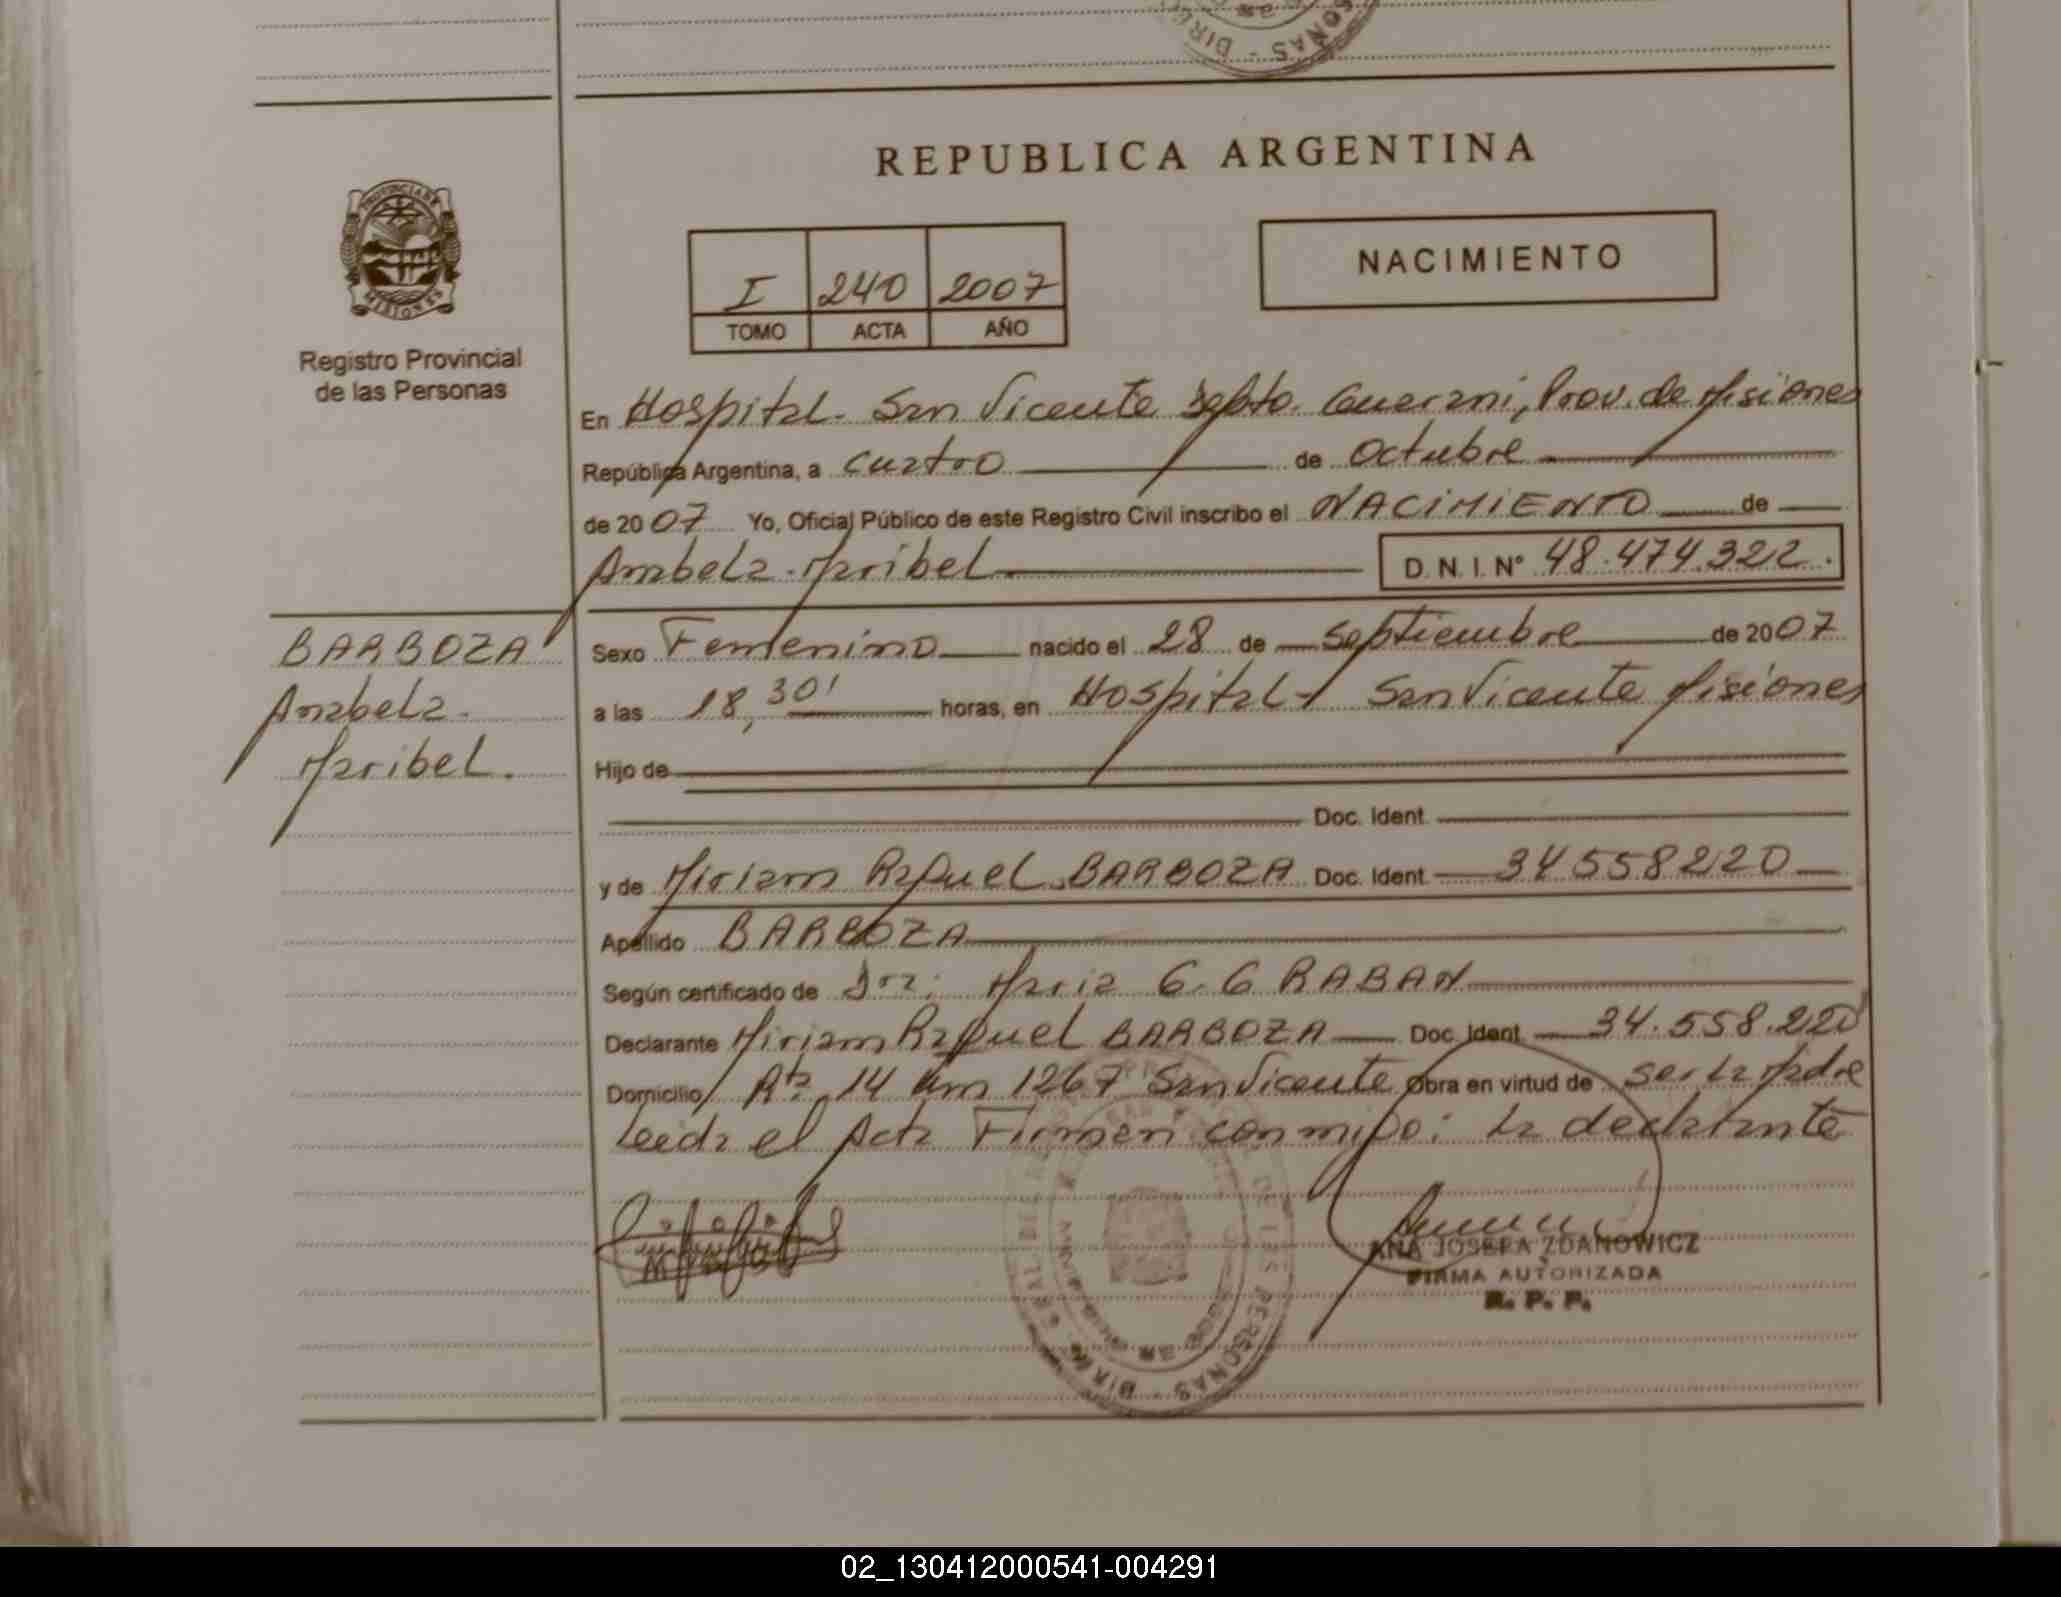 REPUBLICA ARGENTINA
PROVINCIA DE
MISIONES
Registro Provincial
de las Personas
I 240 2007
TOMO ACTA AÑO
NACIMIENTO
En Hospital - San Vicente Dpto. Guarani, Prov. de Misiones
República Argentina, a cuatro de Octubre
de 2007 Yo, Oficial Público de este Registro Civil inscribo el NACIMIENTO de
Anabela Maribel D.N.I. Nº 48.474.322.
BARBOZA
Anabela
Maribel.
Sexo Femenino nacido el 28 de Septiembre de 2007
a las 18,30' horas, en Hospital - San Vicente Misiones
Hijo de
Doc. Ident.
y de Miriam Raquel BARBOZA Doc. Ident. 34558220
Apellido BARBOZA
Según certificado de Dra: Maria G. G RABAN
Declarante Miriam Raquel BARBOZA Doc. Ident. 34.558.220
Domicilio Rta. 14 km 1267 San Vicente Obra en virtud de ser la Madre
Leida el Acta Firman conmigo: la declarante
ANA JOSEFA ZDANOWICZ
FIRMA AUTORIZADA
R. P. P.
DE LAS PERSONAS
02_130412000541-004291